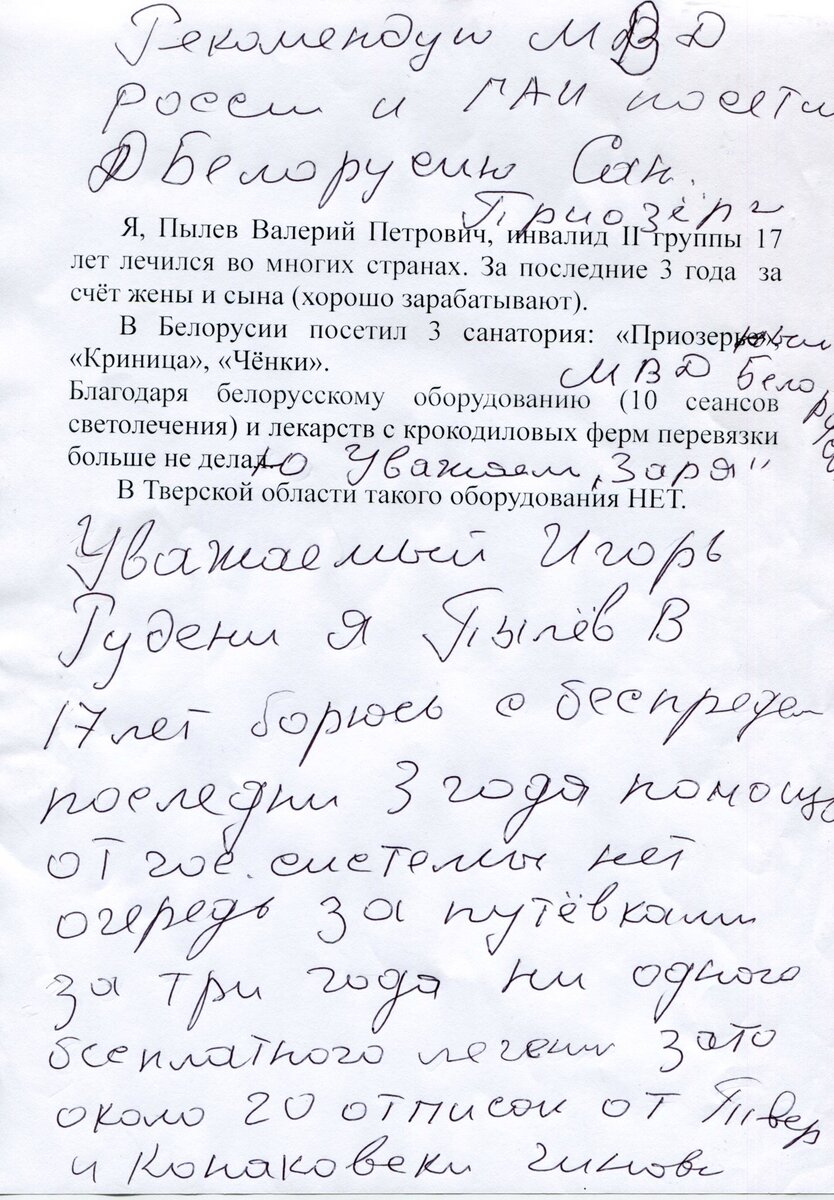 Рекомендую МВД
россии и ГАИ посети
Белорусию Сан.
Приозёр
Я, Пылев Валерий Петрович, инвалид II группы 17
лет лечился во многих странах. За последние 3 года за
счёт жены и сына (хорошо зарабатывают).
В Белорусии посетил 3 санатория: «Приозерный
«Криница», «Чёнки».
МВД Белорус
Благодаря белорусскому оборудованию (10 сеансов
светолечения) и лекарств с крокодиловых ферм перевязки
больше не делаю Уважаем „Заря"
В Тверской области такого оборудования НЕТ.
Уважаемый Игорь
Рудени Я Пылёв В
17 лет борюсь с беспредел
последни 3 года помощь
от гос. системы нет
очередь за путёвками
за три года ни одного
бесплатного лечени зато
около 20 отписок от Твер
и Конаковски чинов